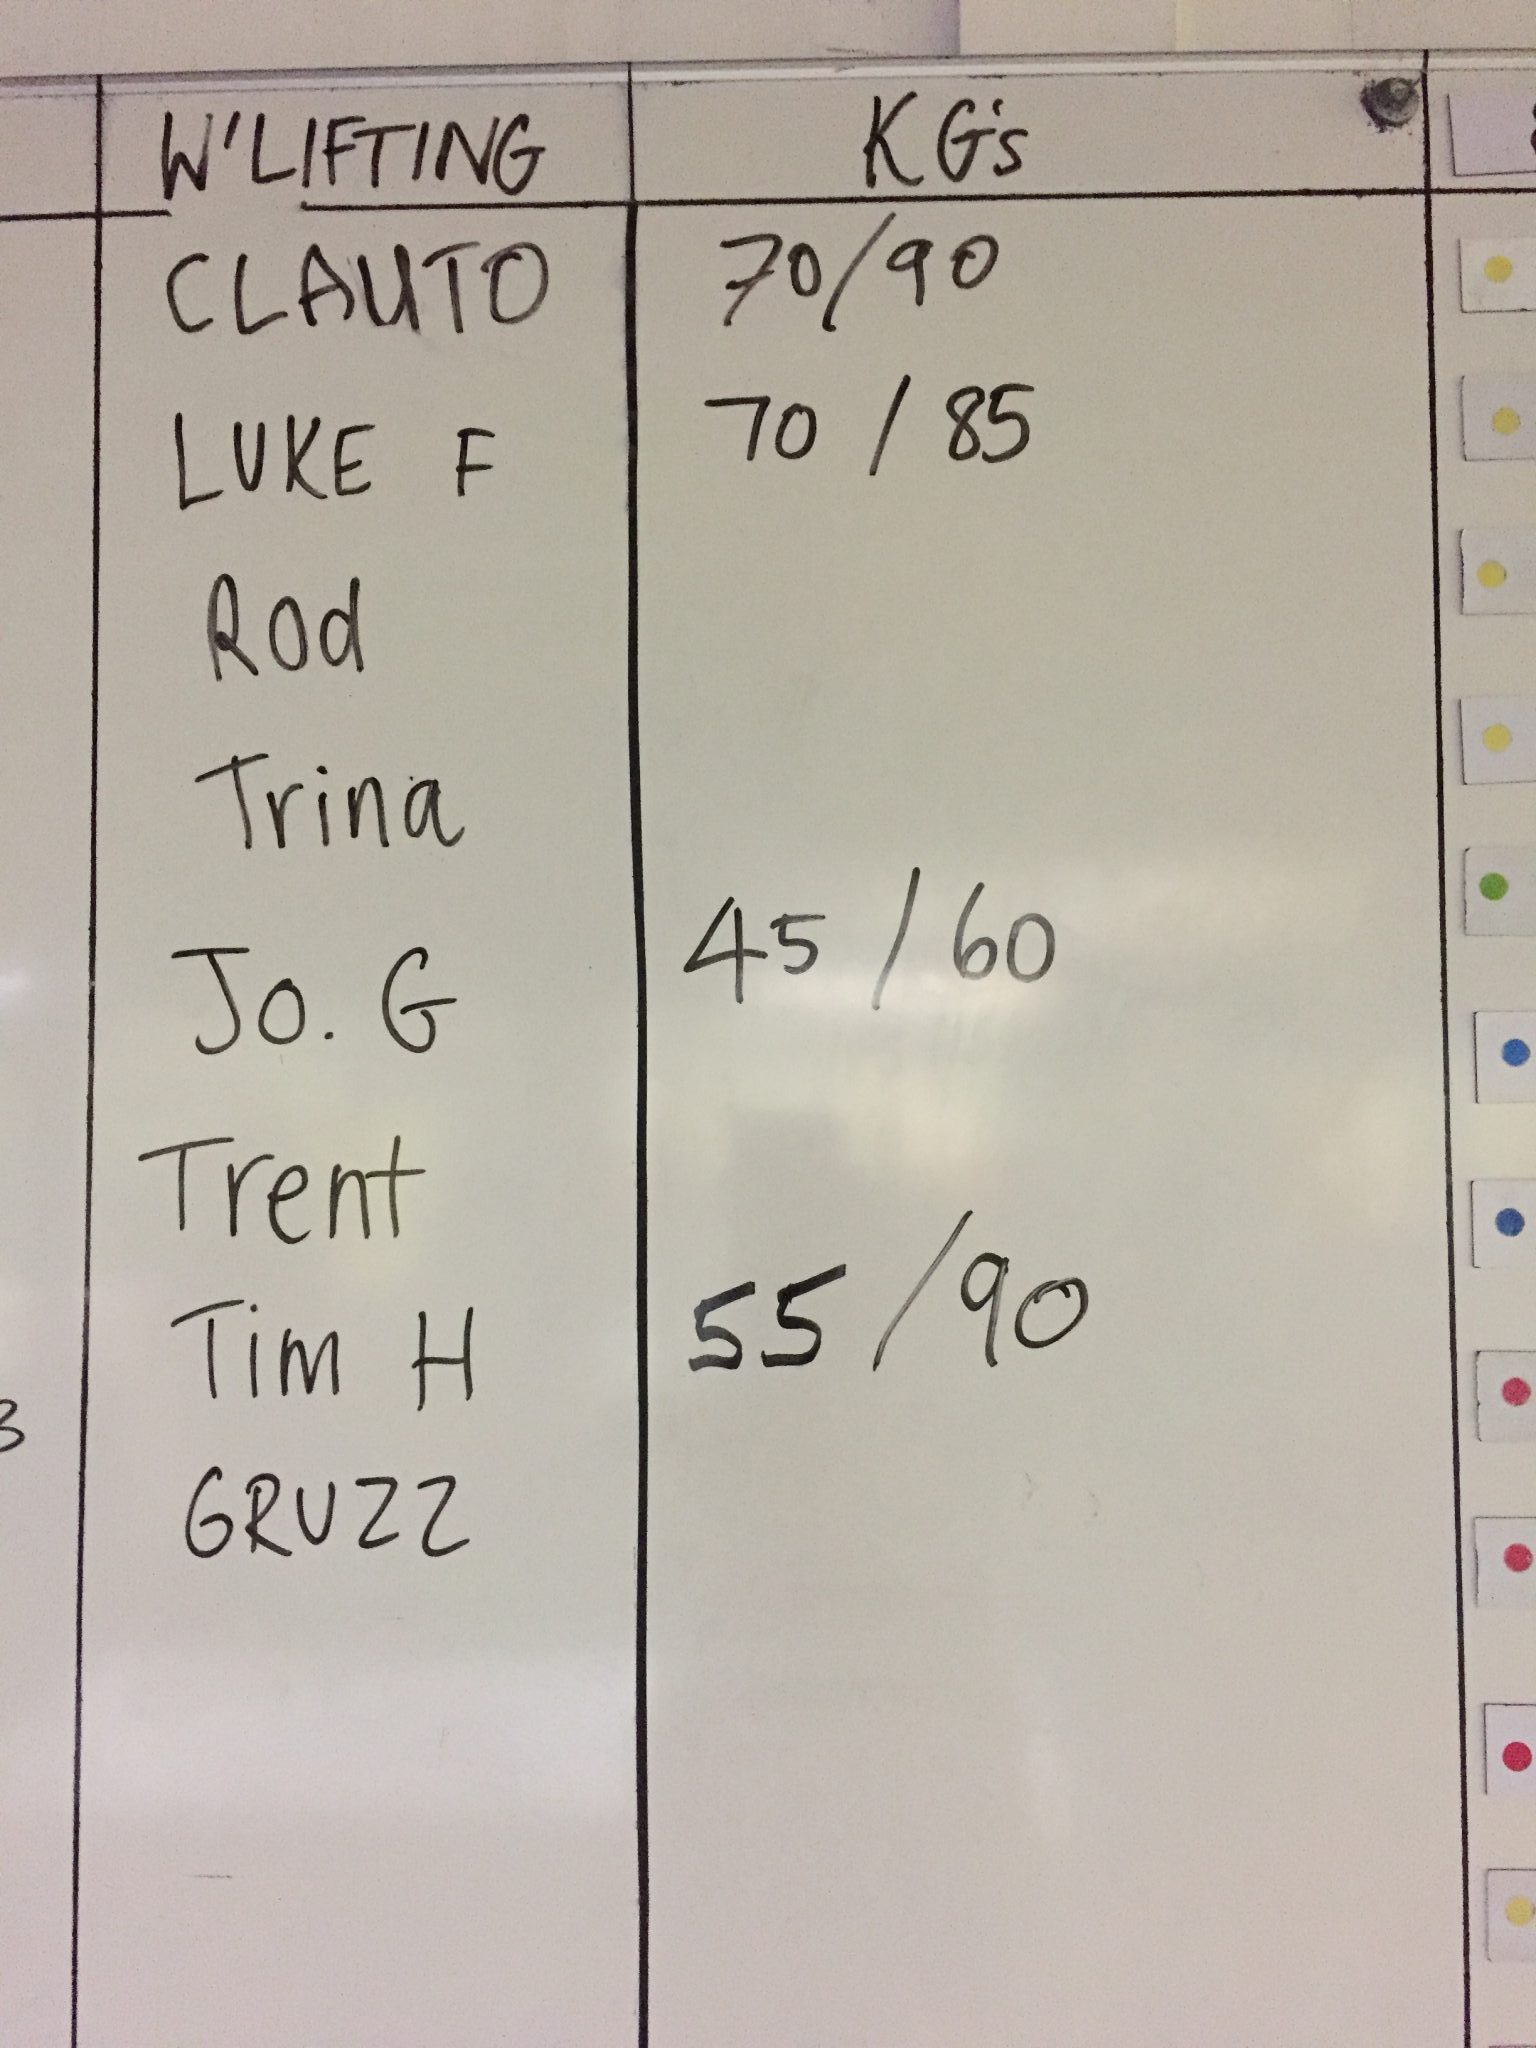 W'LIFTING KG's
CLAUTO 70/90
LUKE F 70 / 85
Rod
Trina
Jo. G 45 / 60
Trent
Tim H 55 / 90
GRUZZ